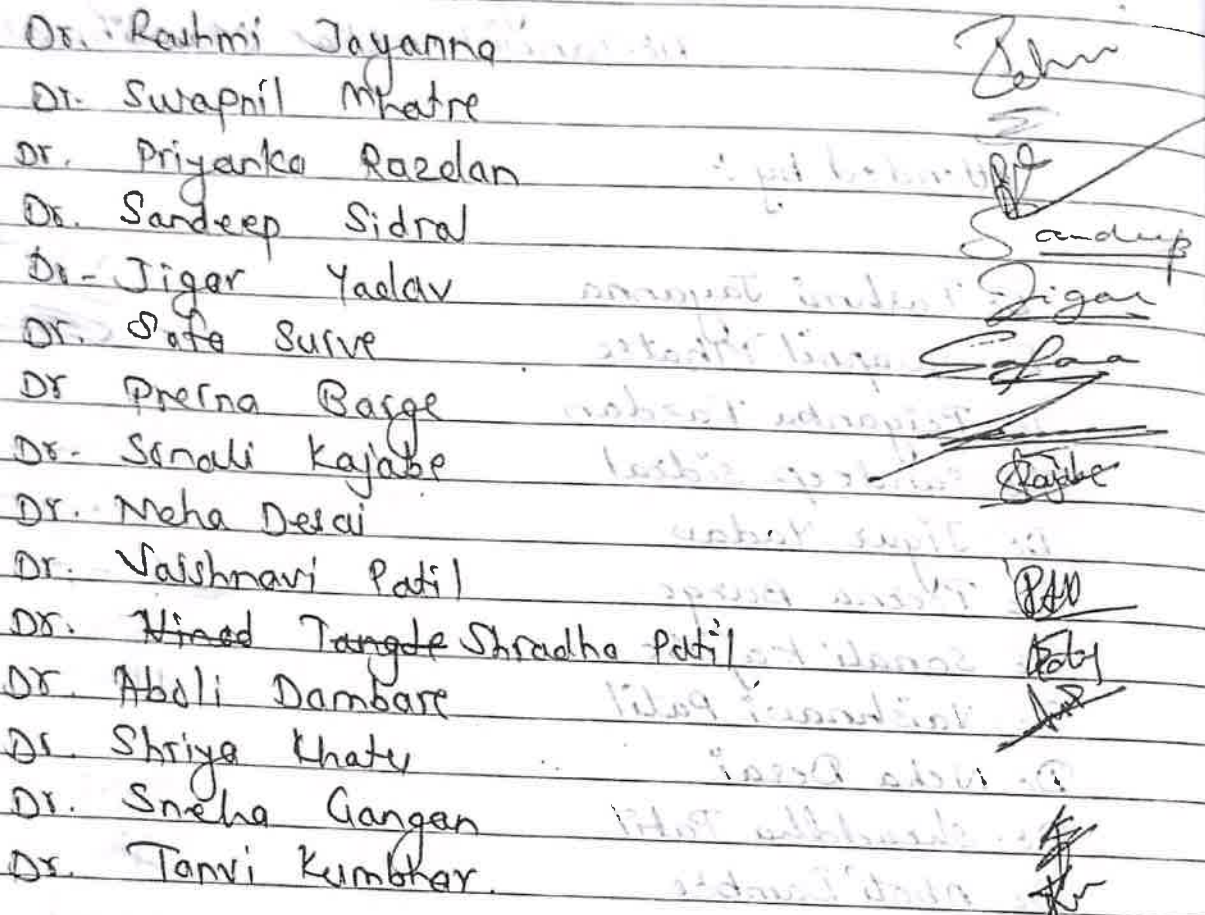 Dr. Rashmi Jayanna
Dr. Swapnil Mhatre
Dr. Priyanka Razdan
Dr. Sandeep Sidral Sandeep
Dr. Jigar Yadav Jigar
Dr. Safa Surve Safaa
Dr Prerna Barge
Dr. Sonali Kajabe Kajabe
Dr. Neha Desai
Dr. Vaishnavi Patil
Dr. Vinod Tangde Shradha Patil
Dr. Aboli Dambare
Dr. Shriya Khatu
Dr. Sneha Gangan
Dr. Tanvi Kumbhar.